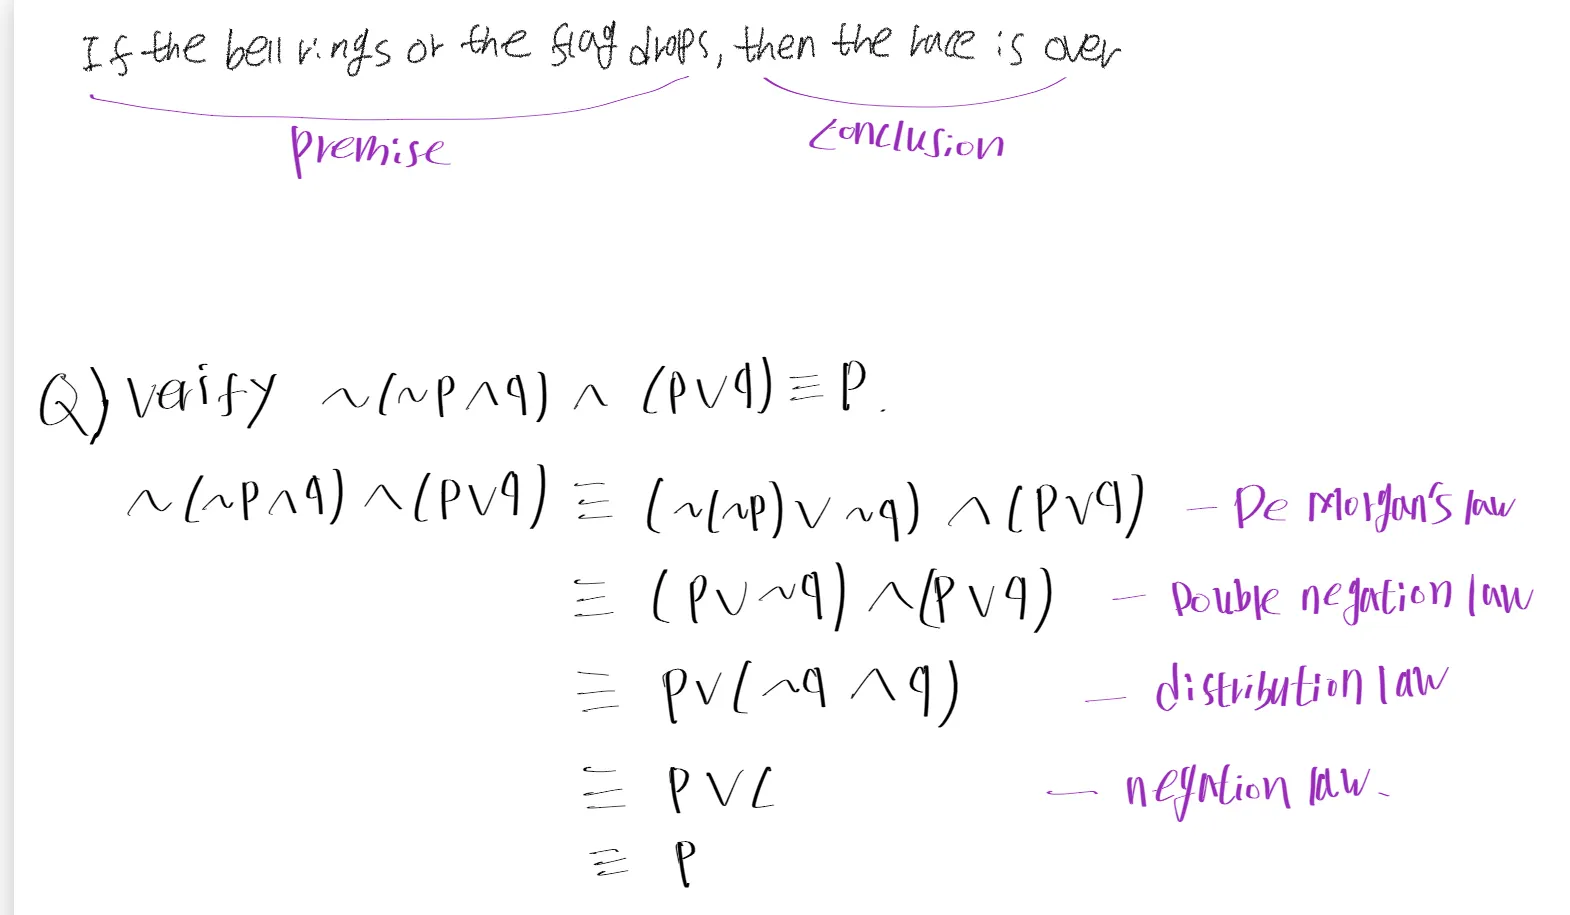 If the bell rings or the flag drops, then the race is over
premise conclusion
Q) verify ~(~p∧q) ∧ (p∨q) ≡ p.
~(~p∧q) ∧ (p∨q) ≡ (~(~p) ∨ ~q) ∧ (p∨q) – De Morgan's law
≡ (p∨~q) ∧ (p∨q) – Double negation law
≡ p∨(~q ∧ q) – distribution law
≡ p∨c – negation law.
≡ p